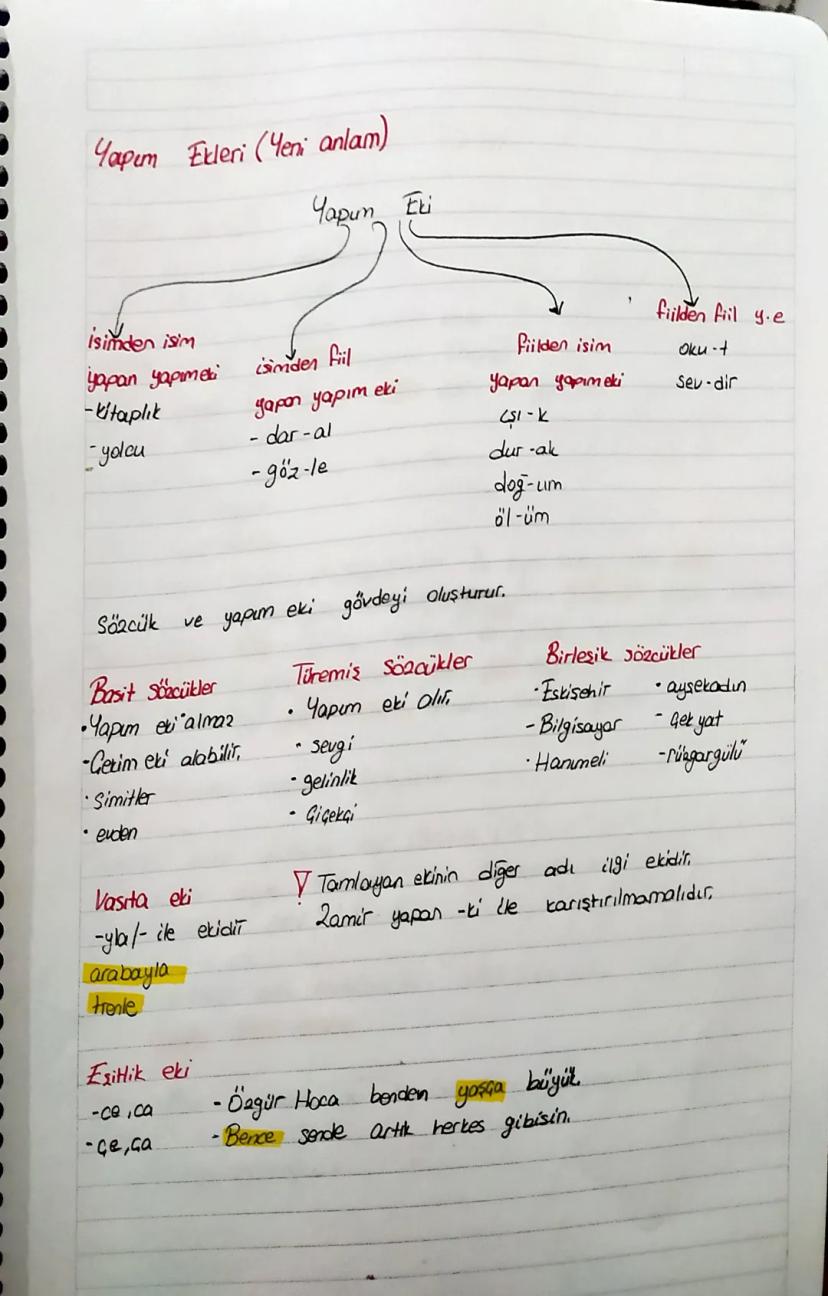 Yapım Ekleri (Yeni anlam)
Yapım Eki
isimden isim
yapan yapım eki
-kitaplık
-yolcu
isimden fiil
yapan yapım eki
- dar-al
- göz-le
fiilden isim
yapan yapım eki
ışı-k
dur-ak
doğ-um
öl-üm
fiilden fiil y.e
oku-t
sev-dir
Sözcük ve yapım eki gövdeyi oluşturur.
Basit sözcükler
•Yapım eki almaz
-Çekim eki alabilir.
•Simitler
• evden
Türemiş sözcükler
• Yapım eki alır.
• sevgi
• gelinlik
• Çiçekçi
Birleşik sözcükler
•Eskişehir
-Bilgisayar
•Hanımeli
• ayşekadın
- Çekyat
-rüzgargülü
Vasıta eki
-yla/- ile ekidir
arabayla
trenle
! Tamlayan ekinin diğer adı ilgi ekidir.
Zamir yapan -ki ile karıştırılmamalıdır.
Eşitlik eki
-ce, ca
-çe, ça
- Özgür Hoca benden yaşça büyük.
-Bence sende artık herkes gibisin.